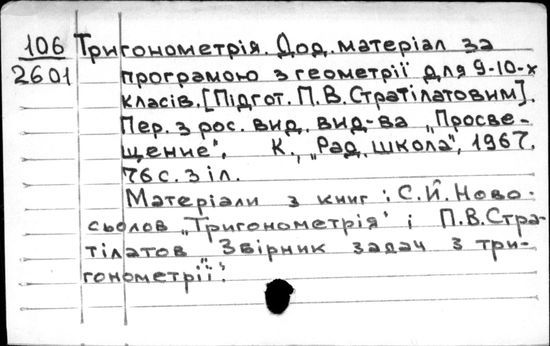 106 Тригонометрія. Дод. матеріал за
2601 програмою з геометрії для 9-10-х
класів. [Підгот. П.В.Стратілатовим].
Пер. з рос. вид. вид-ва „Просве-
щение". К., „Рад. школа", 1967.
76 с. з іл.
Матеріали з книг: С.Й.Ново-
сьолов „Тригонометрія" і П.В.Стра-
тілатов „Збірник задач з три-
гонометрії".